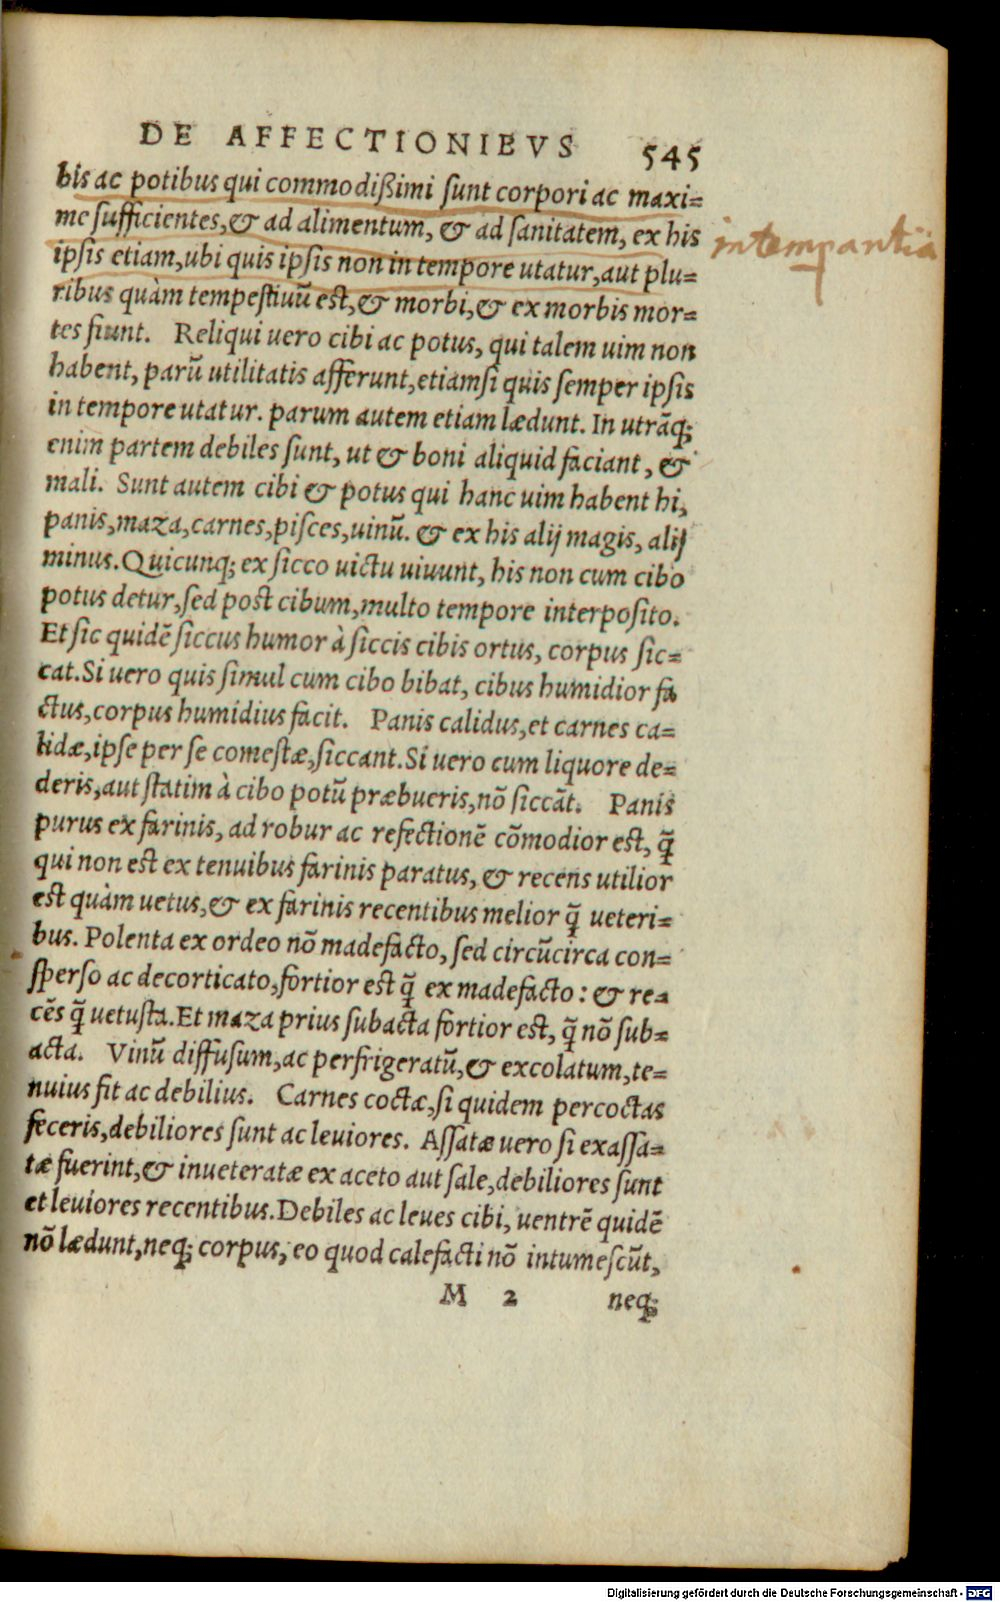 DE AFFECTIONIBVS 545
bis ac potibus qui commodißimi sunt corpori ac maxi=
me sufficientes,& ad alimentum, & ad sanitatem, ex his
intemperantia
ipsis etiam,ubi quis ipsis non in tempore utatur,aut plu=
ribus quàm tempestiuũ est,& morbi,& ex morbis mor=
tes fiunt. Reliqui uero cibi ac potus, qui talem uim non
habent, parũ utilitatis afferunt,etiamsi quis semper ipsis
in tempore utatur. parum autem etiam lædunt. In utrãq;
enim partem debiles sunt, ut & boni aliquid faciant, &
mali. Sunt autem cibi & potus qui hanc uim habent hi,
panis,maza,carnes,pisces,uinũ. & ex his alij magis, alij
minus.Quicunq; ex sicco uictu uiuunt, his non cum cibo
potus detur,sed post cibum,multo tempore interposito.
Et sic quidẽ siccus humor à siccis cibis ortus, corpus sic=
cat.Si uero quis simul cum cibo bibat, cibus humidior fa
ctus,corpus humidius facit. Panis calidus,et carnes ca=
lidæ,ipse per se comestæ,siccant.Si uero cum liquore de=
deris,aut statim à cibo potũ præbueris,nõ siccãt. Panis
purus ex farinis, ad robur ac refectionẽ cõmodior est, q̃
qui non est ex tenuibus farinis paratus, & recens utilior
est quàm uetus,& ex farinis recentibus melior q̃ ueteri=
bus. Polenta ex ordeo nõ madefacto, sed circũcirca con=
sperso ac decorticato,fortior est q̃ ex madefacto: & re=
cẽs q̃ uetusta.Et maza prius subacta fortior est, q̃ nõ sub=
acta. Vinũ diffusum,ac perfrigeratũ,& excolatum,te=
nuius fit ac debilius. Carnes coctæ,si quidem percoctas
feceris,debiliores sunt ac leuiores. Assatæ uero si exassa=
tæ fuerint,& inueteratæ ex aceto aut sale,debiliores sunt
et leuiores recentibus.Debiles ac leues cibi, uentrẽ quidẽ
nõ lædunt,neq; corpus, eo quod calefacti nõ intumescũt,
M 2 neq;
Digitalisierung gefördert durch die Deutsche Forschungsgemeinschaft - DFG